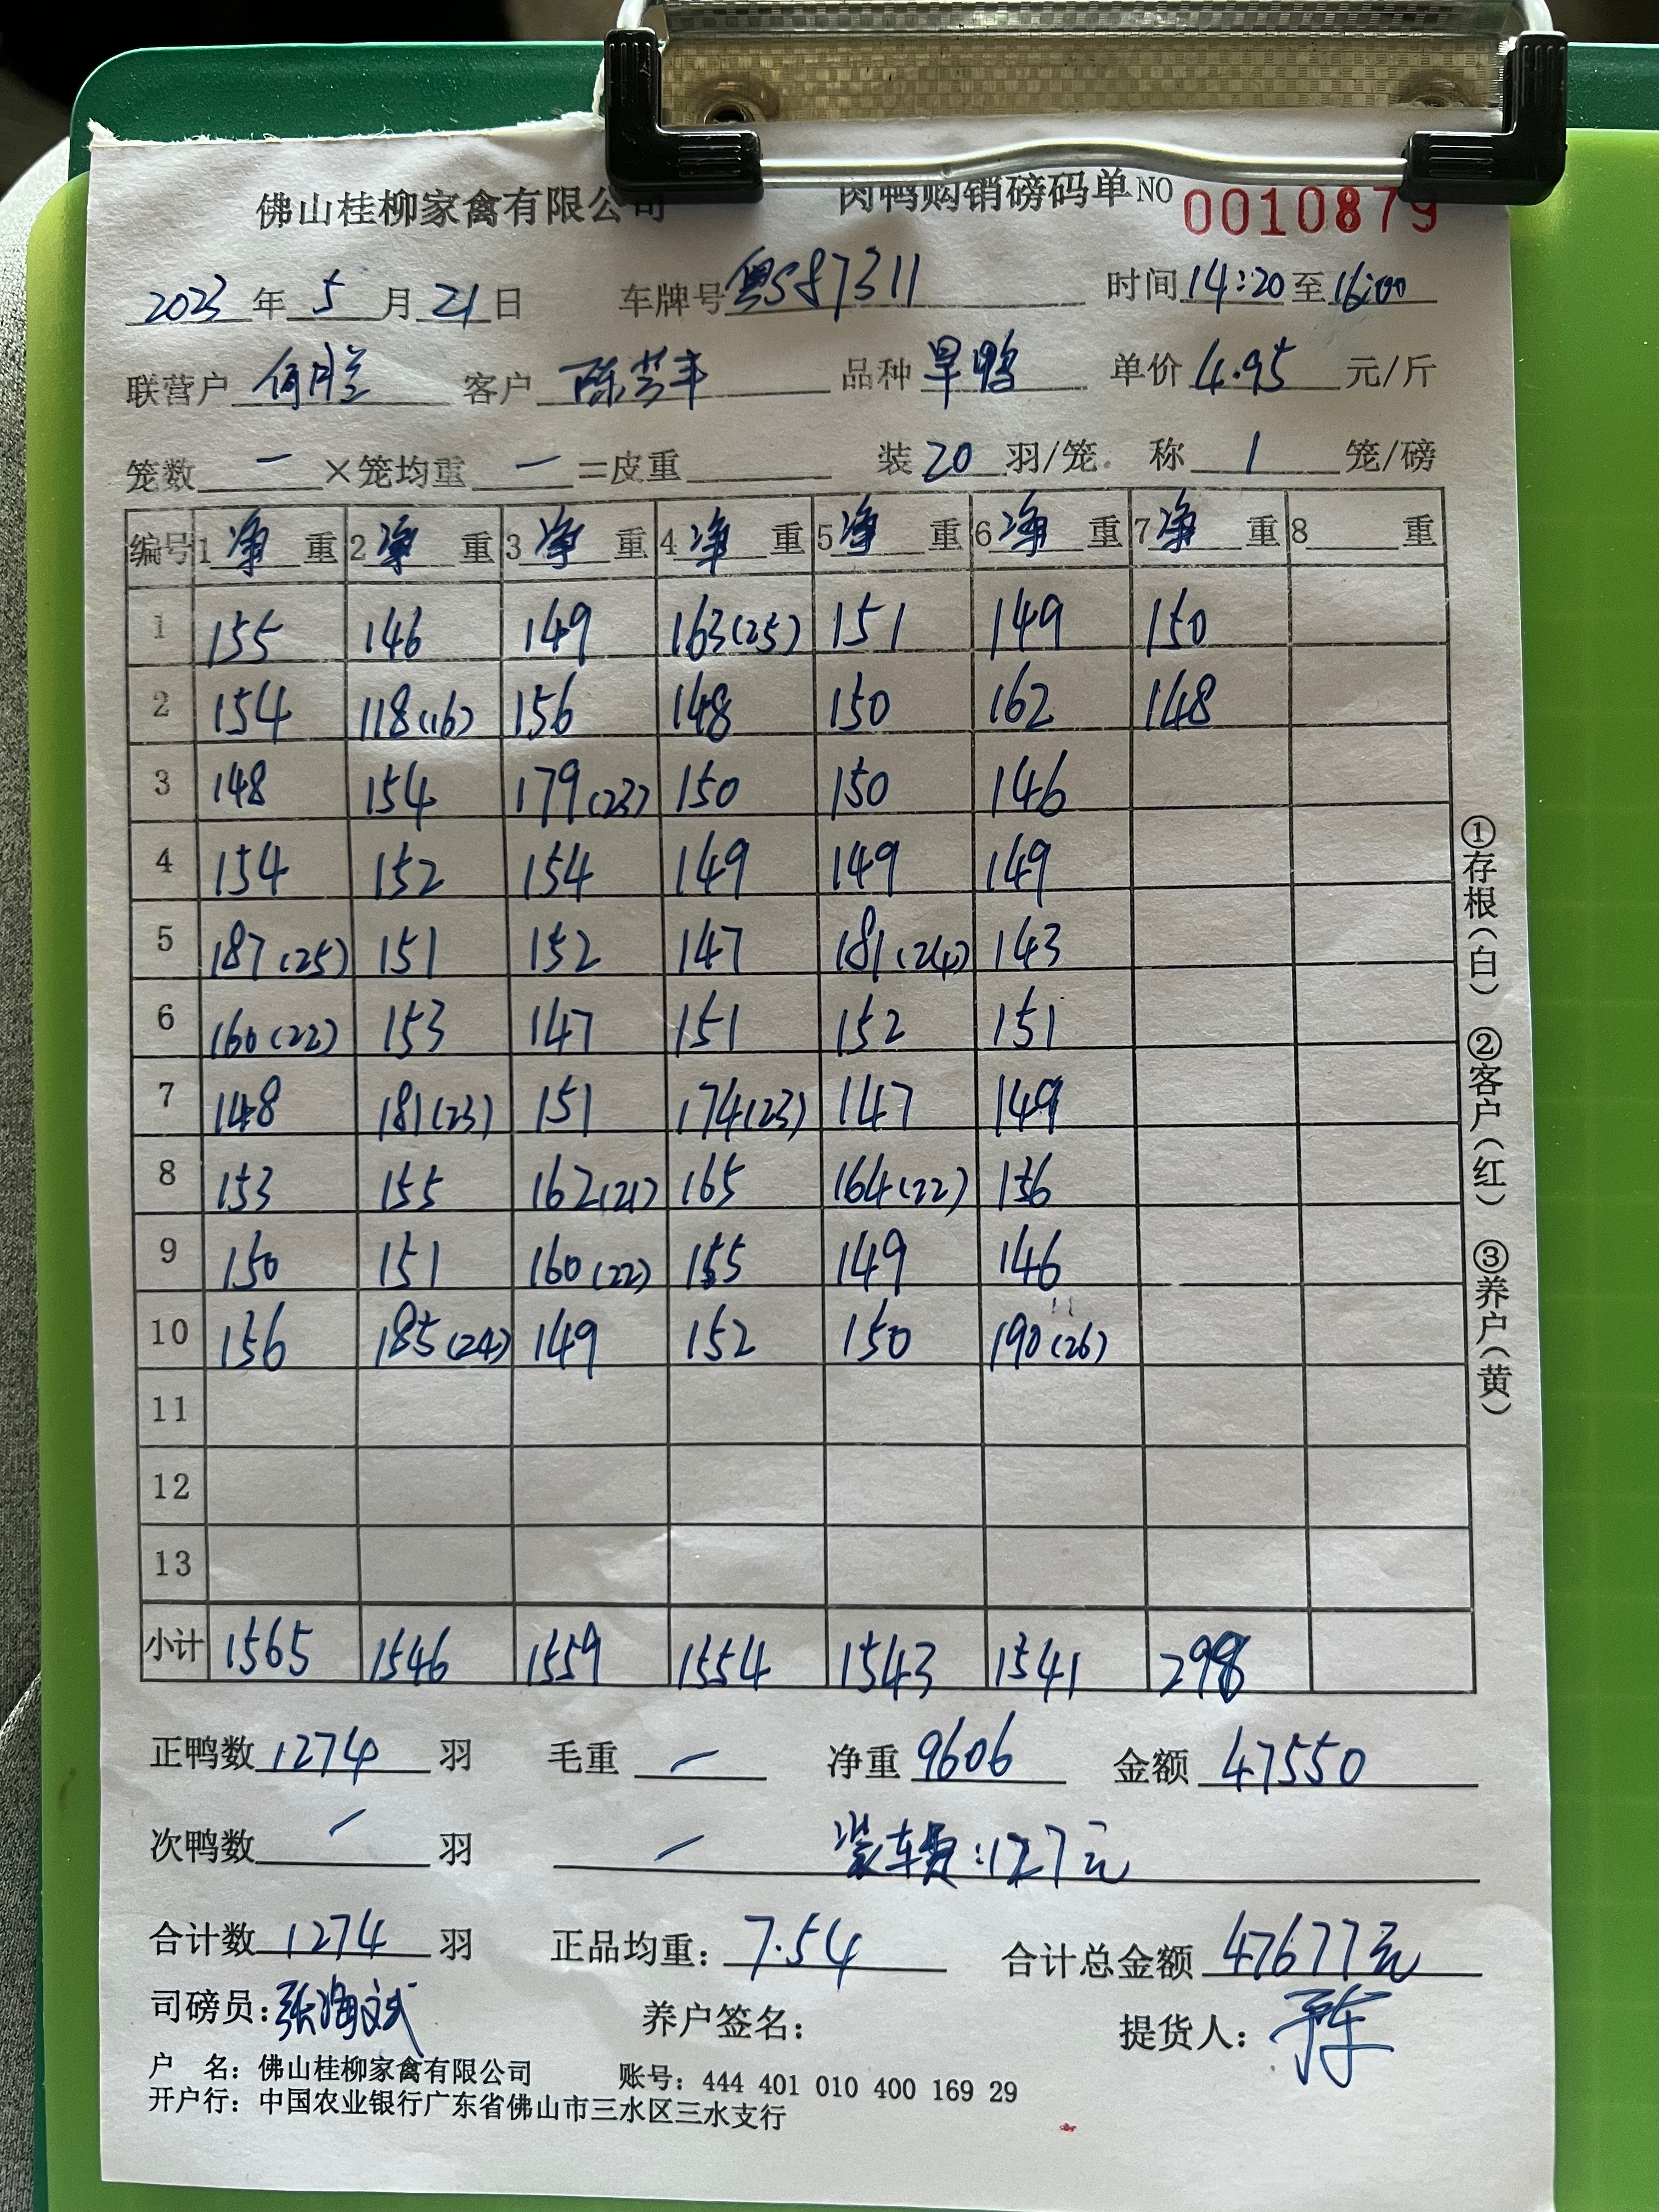 佛山桂柳家禽有限公司 肉鸭购销磅码单NO 0010879
2023年5月21日 车牌号粤S87311 时间14:20至16:00
联营户何月兰 客户陈芸丰 品种旱鸭 单价4.95元/斤
笼数一×笼均重一=皮重 装20羽/笼. 称1笼/磅
编号 1净重 2净重 3净重 4净重 5净重 6净重 7净重 8 重
1 155 146 149 163(25) 151 149 150
2 154 118(16) 156 148 150 162 148
3 148 154 179(23) 150 150 146
4 154 152 154 149 149 149
5 187(25) 151 152 147 181(24) 143
6 160(22) 153 147 151 152 151
7 148 181(23) 151 174(23) 147 149
8 153 155 162(21) 165 164(22) 156
9 150 151 160(22) 155 149 146
10 156 185(24) 149 152 150 190(26)
11
12
13
小计 1565 1546 1559 1554 1543 1541 298
正鸭数1274羽 毛重 一 净重9606 金额47550
次鸭数 一 羽 一 装车费:127元
合计数1274羽 正品均重:7.54 合计总金额47677元
司磅员:张海斌 养户签名: 提货人:
户 名:佛山桂柳家禽有限公司 账号:444 401 010 400 169 29
开户行:中国农业银行广东省佛山市三水区三水支行
①存根(白) ②客户(红) ③养户(黄)